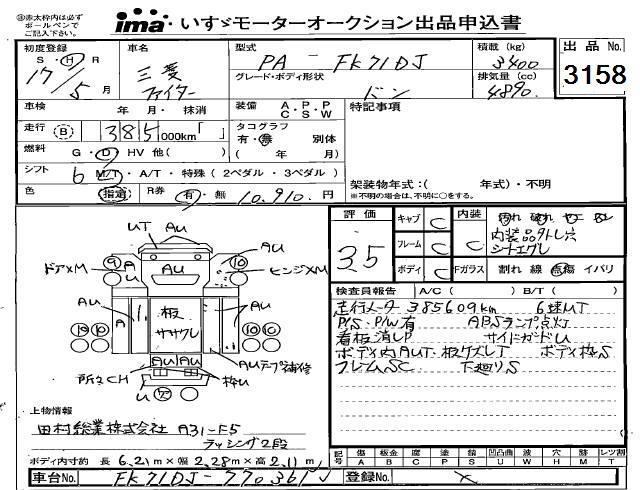 ※赤太枠内は必ず
ボールペンで
ご記入下さい。
ima いすゞモーターオークション出品申込書
初度登録 車名 型式 積載(kg) 出品No.
S・H・R 三菱 PA－FK71DJ 3400 3158
17/5 年 月 ファイター グレード・ボディ形状 排気量(cc)
ドン 4890
車検 年・月・抹消 装備 A・P・P C S W 特記事項
走行 B 385,000km「 」 タコグラフ
有・無 別体
燃料 G・D・HV 他( ) ( 年 月)
シフト 6 M/T・A/T・特殊(2ペダル・3ペダル)
架装物年式:( 年式)・不明
色 指定 R券 有・無 10,910.円 ※不明の場合は、不明に○をする。
評価 キャブ C 内装 切れ 破れ
3.5 フレーム C C 内装品外し穴
シートエグレ
ボディ C Fガラス 割れ 線 点傷 イバリ
UT AU
AU
ドアXM 9 AU 10 ヒンジXM
AU A 板ササクレ AU
10 10 10 10
AU AU AUテープ補修
所々CH 枠U
U
検査員報告 A/C( ) B/T( )
走行メーター 385609km 6速MT
P/S P/W有 ABSランプ点灯
看板消しP サイドガードU
ボディ内AUT 板クズレT ボディ枠S
フレームSC 下廻りS
上物情報
田村総業株式会社 A31-F5
ラッシング2段
記号 傷 板金 腐 塗 錆 凹凸曲 波 穴 外 レツ割
A B C P S U W H M T
ボディ内寸約 長 6.21m×幅 2.28m×高 2.11m
車台No. FK71DJ-770361 登録No. ×